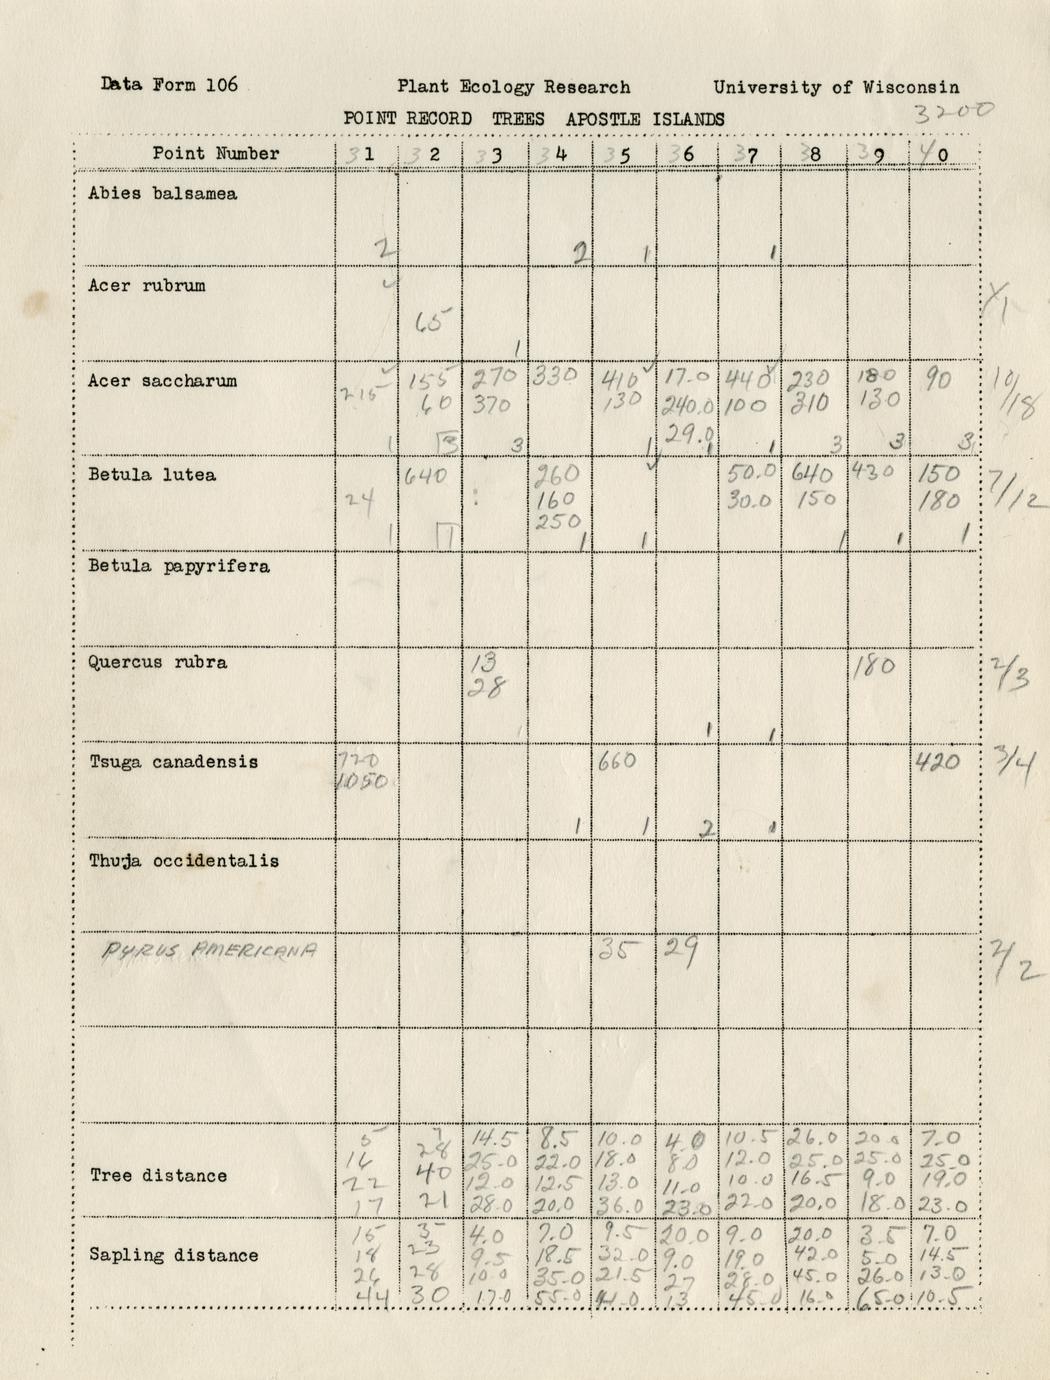 Data Form 106 Plant Ecology Research University of Wisconsin
3200
POINT RECORD TREES APOSTLE ISLANDS
Point Number 31 32 33 34 35 36 37 38 39 40
Abies balsamea
2 2 1 1
Acer rubrum ✓
65
1
1/1
Acer saccharum 215 155 270 330 410 17.0 440 230 180 90
60 370 130 240.0 100 310 130
29.0
1 3 3 1 1 1 3 3 3
10/18
Betula lutea 24 640 260 50.0 640 430 150
160 30.0 150 180
250
1 1 1 1 1 1 1
7/12
Betula papyrifera
Quercus rubra 13 180
28
1 1 1
2/3
Tsuga canadensis 720 660 420
1050
1 1 2 1
3/4
Thuja occidentalis
PYRUS AMERICANA 35 29
2/2
Tree distance
5 7 14.5 8.5 10.0 4.0 10.5 26.0 20.0 7.0
16 28 25.0 22.0 18.0 8.0 12.0 25.0 25.0 25.0
22 40 12.0 12.5 13.0 11.0 10.0 16.5 9.0 19.0
17 21 28.0 20.0 36.0 23.0 22.0 20.0 18.0 23.0
Sapling distance
15 3 4.0 7.0 9.5 20.0 9.0 20.0 3.5 7.0
18 23 9.5 18.5 32.0 9.0 19.0 42.0 5.0 14.5
26 28 10.0 35.0 21.5 27 28.0 45.0 26.0 13.0
44 30 17.0 55.0 41.0 13 45.0 16.0 65.0 10.5